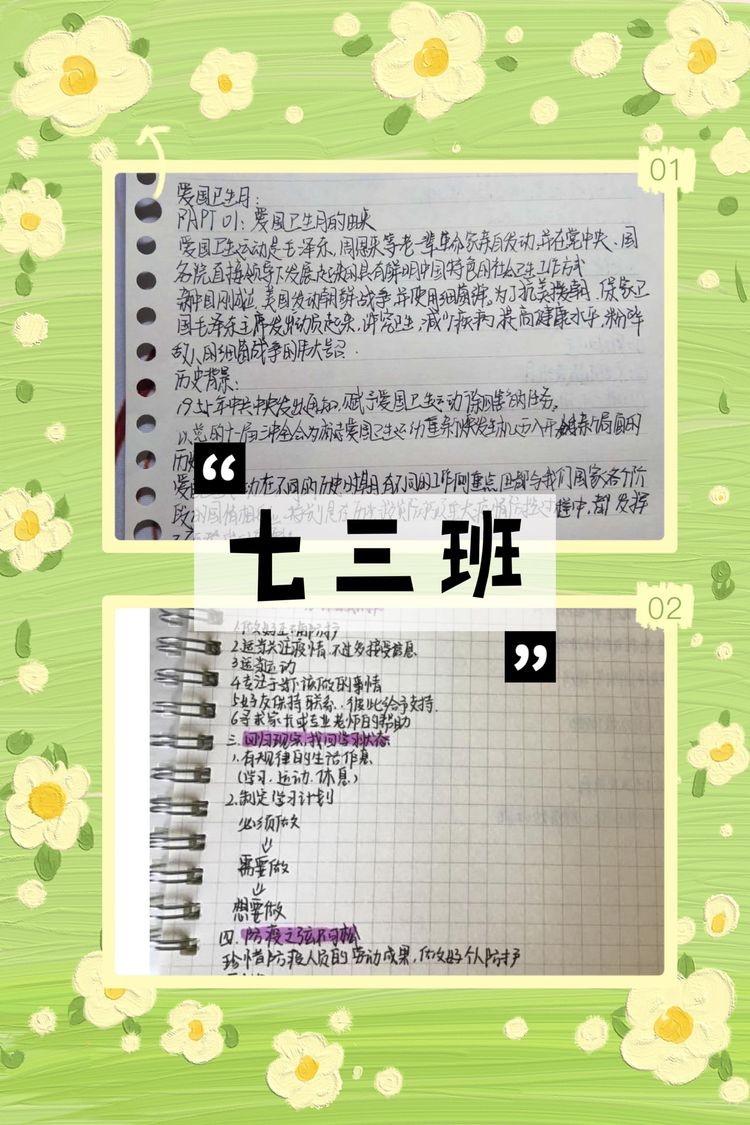 01
爱国卫生月:
PAPT 01: 爱国卫生月的由来
爱国卫生运动是毛泽东、周恩来等老一辈革命家亲自发动,并在党中央、国
务院直接领导下发展起来的具有鲜明中国特色的社会卫生工作方式
新中国刚成立,美国发动朝鲜战争,并使用细菌弹,为了抗美援朝、保家卫
国毛泽东主席发出动员起来,讲究卫生,减少疾病,提高健康水平,粉碎
敌人用细菌战争的伟大号召.
历史背景:
中共中央发出通知,赋予爱国卫生运动除四害的任务。
党的十一届三中全会为标志爱国卫生运动重新焕发生机迈入开创新局面的
历
爱 动在不同的历史时期有不同的工作侧重点,但都与我们国家各个阶
段的国情相 程中,都发挥
“
七三班
”
02
1.做好正确防护
2.适当关注疫情,不过多接受信息
3.适当运动
4.专注于当下该做的事情
5.好友保持联系、彼此给予支持.
6.寻求家长或专业老师的帮助
三.回归现实,找回学习状态
1.有规律的生活作息
(学习、运动、休息)
2.制定学习计划
必须做
↓
需要做
↓
想要做
四.防疫之弦不可松
珍惜防疫人员的劳动成果,做好个人防护